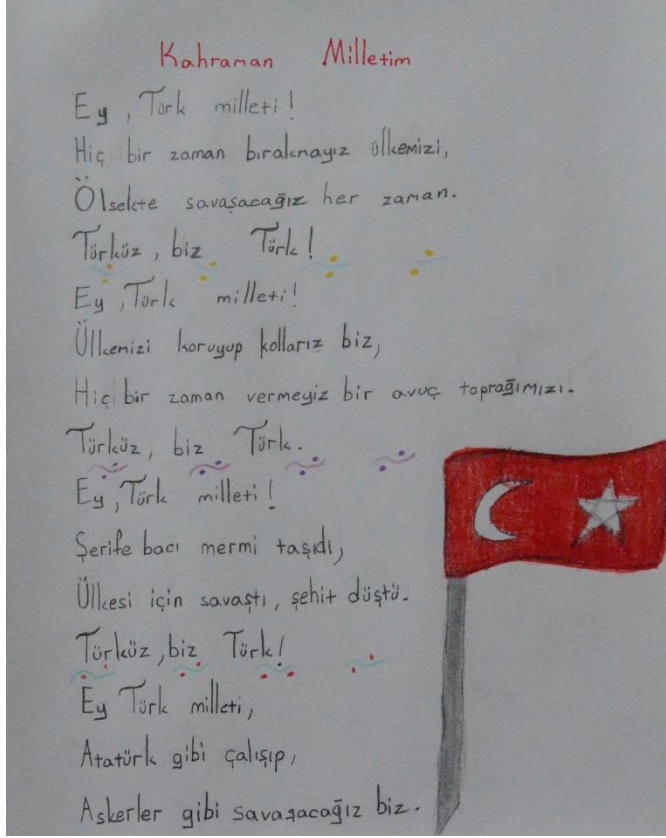 Kahraman Milletim
Ey, Türk milleti!
Hiç bir zaman bırakmayız ülkemizi,
Ölsekte savaşacağız her zaman.
Türküz, biz Türk!
Ey, Türk milleti!
Ülkemizi koruyup kollarız biz,
Hiç bir zaman vermeyiz bir avuç toprağımızı.
Türküz, biz Türk.
Ey, Türk milleti!
Şerife bacı mermi taşıdı,
Ülkesi için savaştı, şehit düştü.
Türküz, biz Türk!
Ey Türk milleti,
Atatürk gibi çalışıp,
Askerler gibi savaşacağız biz.